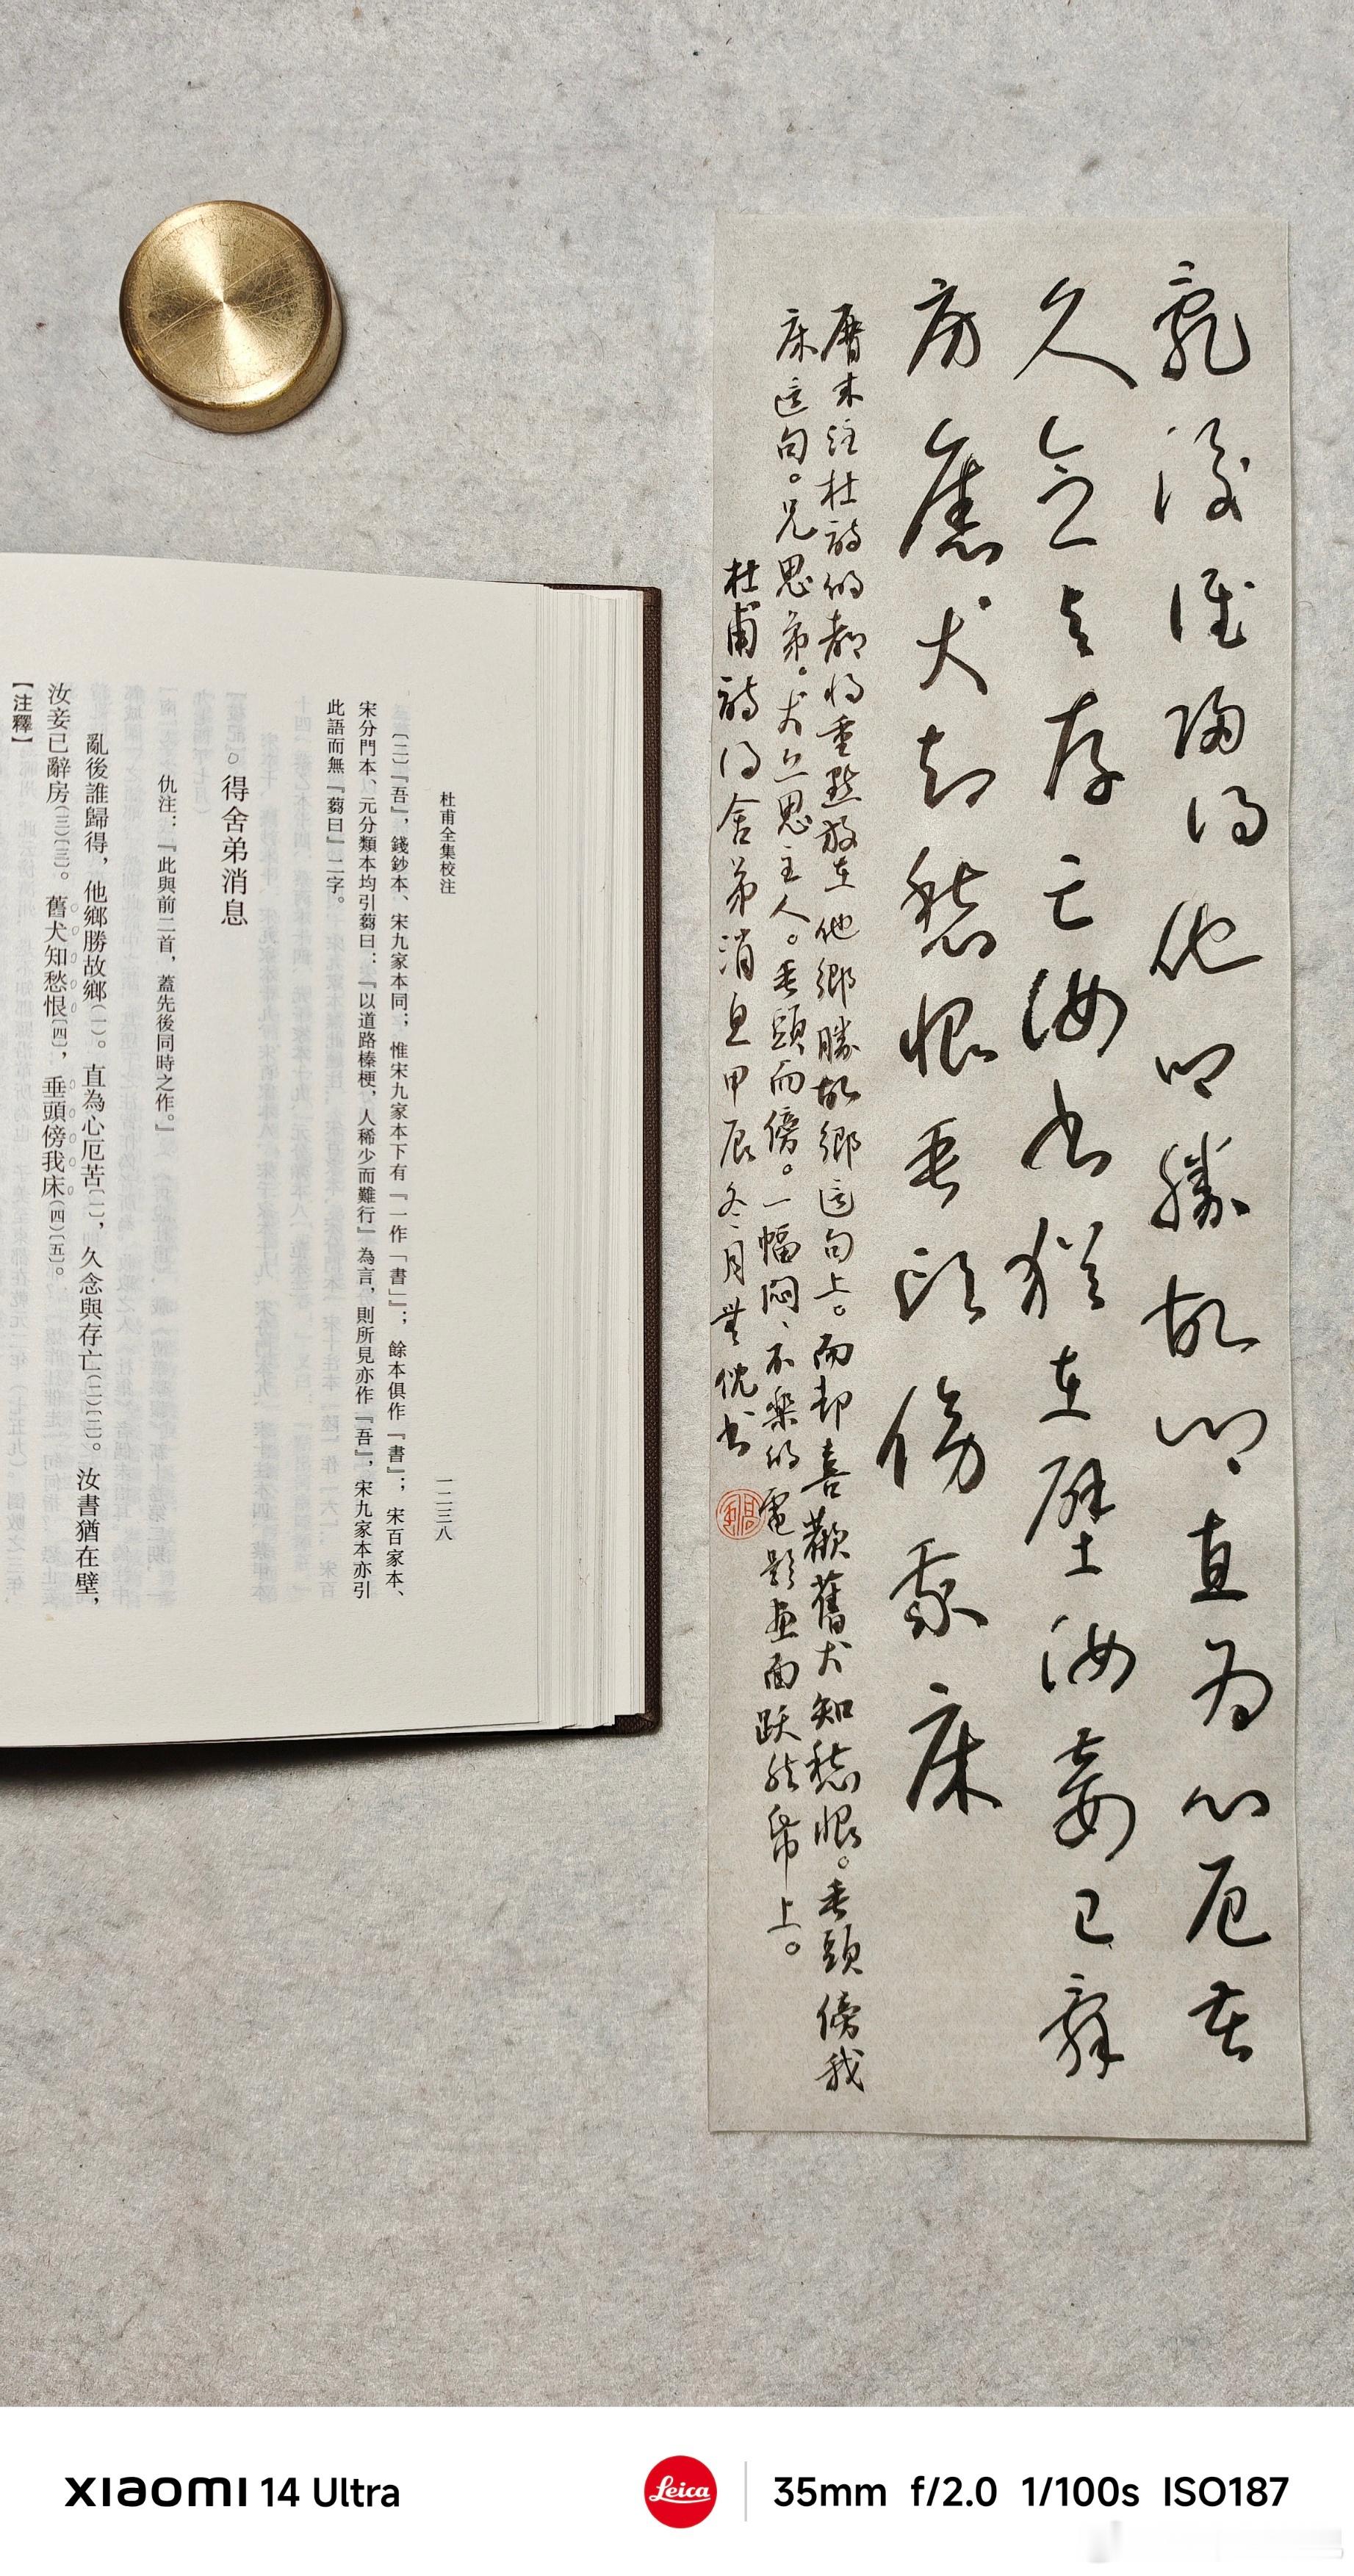 亂後誰歸得他鄉勝故鄉直為心厄苦
久念與存亡汝書猶在壁汝妾已辭
房舊犬知愁恨垂頭傍我床
曆來注杜詩的都將重點放在他鄉勝故鄉這句上。而却喜歡舊犬知愁恨。垂頭傍我
床這句。兄思弟。犬亦思主人。垂頭而傍。一幅悶、不樂的電影畫面跃然帋上。
杜甫詩得舍弟消息甲辰冬月
杜甫全集校注
一二三八
〔二〕『吾』，錢鈔本、宋九家本同；惟宋九家本下有『一作「書」』；餘本俱作『書』；宋百家本、
宋分門本、元分類本均引蒭曰：『以道路榛梗，人稀少而難行』為言，則所見亦作『吾』，宋九家本亦引
此語而無『蒭曰』二字。
得舍弟消息
仇注：『此與前二首，蓋先後同時之作。』
亂後誰歸得，他鄉勝故鄉〔一〕。直為心厄苦〔一〕，久念與存亡〔二〕〔二〕。汝書猶在壁，
汝妾已辭房〔三〕〔三〕。舊犬知愁恨〔四〕，垂頭傍我床〔四〕〔五〕。
【注釋】
XIAOMI 14 Ultra
Leica
35mm f/2.0 1/100s ISO187